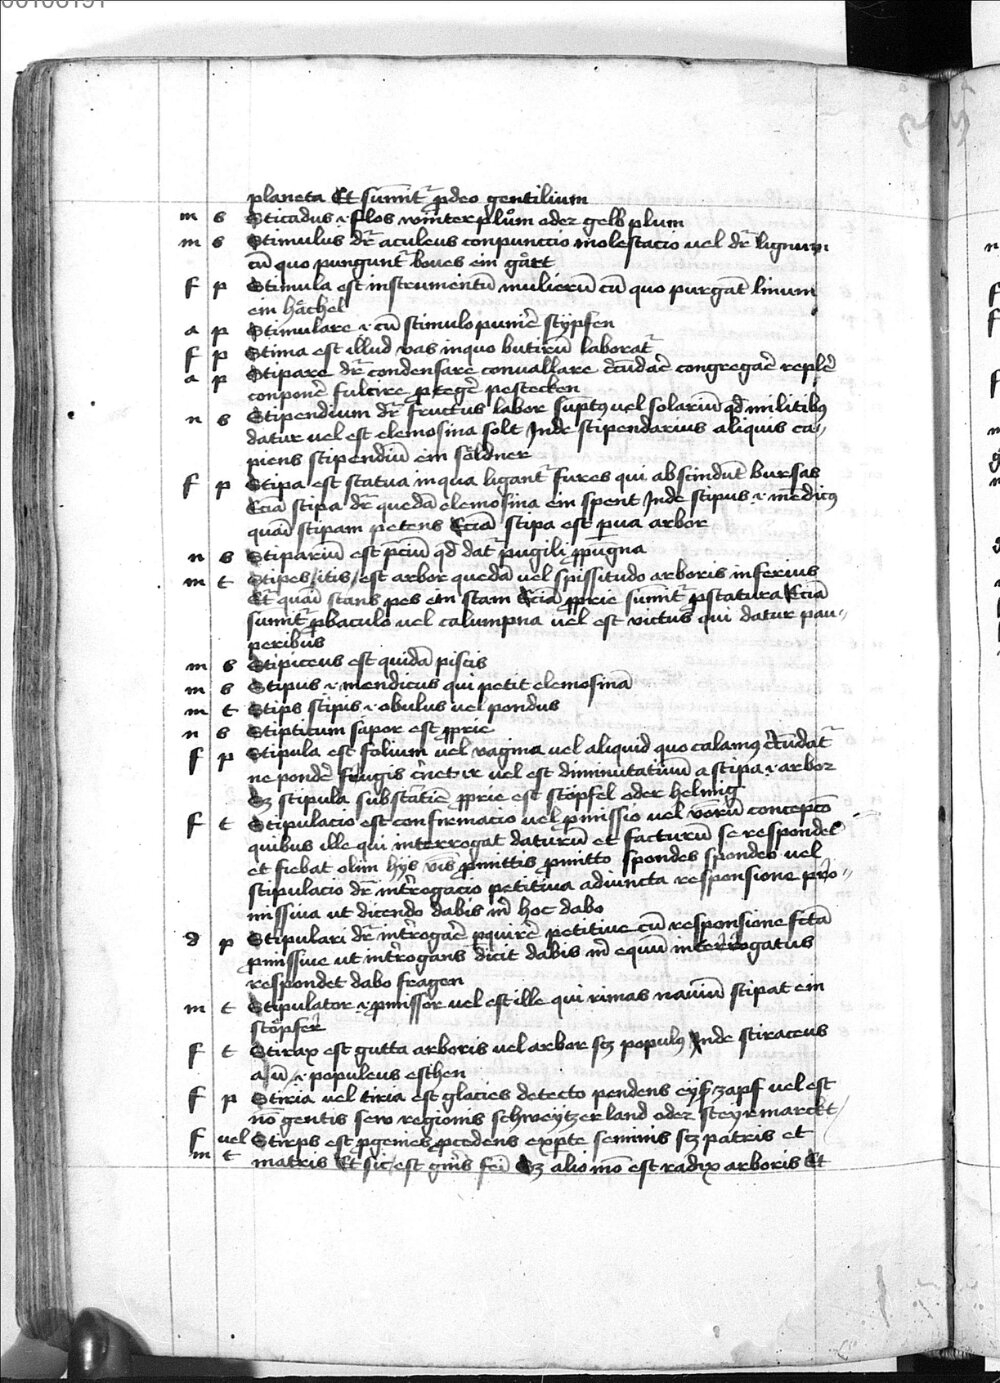 00100191
planeta Et sumit᷑ ꝓ deo gentilium
m s Sticadus ⁊ flos winter plům oder gelb plum
m s Stimulus dr̄ aculeus conpunctio molestacio uel dr̄ lignum
cū quo pungunt᷑ boues ein gårt
f p Stimula est instrumentū mulierū cū quo purgāt linum
ein håchel
a p Stimulare ⁊ cū stimulo punir̄e stÿpfen
f p Stima est illud vas in quo butirū laborat᷑
a p Stipare dr̄ condensare conuallare cͬcūdar̄e congregar̄e repler̄e
conponer̄e fulcire ꝓteger̄e pestecken
n s Stipendium dr̄ fructus labor sūptꝰ uel solariū qd̄ militibꝰ
datur uel est elemosina solt Inde stipendarius aliquis ca⸗
piens stipendiū ein söldner
f p Stipa est statua in qua ligant᷑ fures qui abscindūt bursas
Eciā stipa dr̄ quedā elemosina ein spent Inde stipus ⁊ mēdicꝰ
quāi stipam petens Eciā stipa est ꝑua arbor
n s Stipariū est p̄ciū qd̄ dat᷑ pugili ꝓ pugna
m t Stipes /itis/ est arbor quedā uel spissitudo arboris inferius
Et᷑ quāi stans pes ein stam Eciā ꝓprie sumit᷑ ꝓ statura Eciā
sumit᷑ ꝓ baculo uel calumpna uel est victus qui datur pau⸗
peribus
m s Stipiceus est quidā piscis
m s Stipus ⁊ mendicus qui petit elemosinā
m t Stips stipis ⁊ obulus uel pondus
n s Stipticum sapor est ꝓprie
f p Stipula est folium uel vagina uel aliquid quo calamꝰ cͬcūdat᷑
ne ponder̄e frugis uel est diminutatiuū a stipa ⁊ arbor
Sꝫ stipula substātie ꝓprie est stöpfel oder helmig
f t Stipulacio est confirmacio uel ꝓmissio uel v̄borū concepcō
quibus ille qui interrogat daturū et facturū se respondet
et fiebat olim hÿs v̄bis ꝓmittis ꝓmitto spondes spondeo uel
stipulacio dr̄ int̄rogacio petitiua adiuncta responsione pro⸗
missiua ut dicendo dabis m̄ hoc dabo
d p Stipulari dr̄ int̄rogar̄e ꝓquirer̄e petitiue cū responsione fctā
ꝓmissiue ut int̄rogans dicit dabis m̄ equū interrogatus
respondet dabo fragen
m t Stipulator ⁊ ꝓmissor uel est ille qui rimas nauiū stipat ein
stöpfer
f t Stirax est gutta arboris uel arbor sꝫ populꝰ Inde stiraceus
a ū ⁊ populeus esthen
f p Stiria uel tiria est glacies de tecto pendens eÿß zapf uel est
nō gentis seu regionis schweÿtzer land oder steyr marckt
f uel Stirps est ꝓgenies ꝓcedens ex ꝑte seminis sꝫ patris et
m t matris Et sic est gn̄is fēi Sꝫ alio mō est radix arboris Et